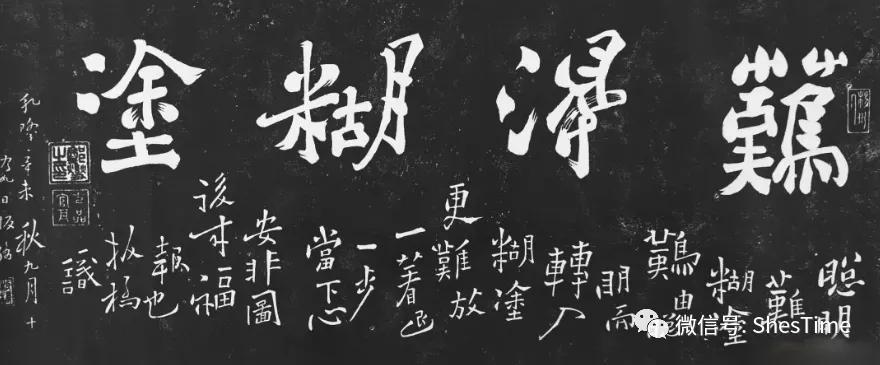 難得糊塗
聰明
難
糊塗
難由
明而
轉入
糊塗
更難放
一著退
一步
當下心
安非圖
後來福
報也
板橋
識
乾隆辛未秋九月十
九日板橋
微信号: ShesTime